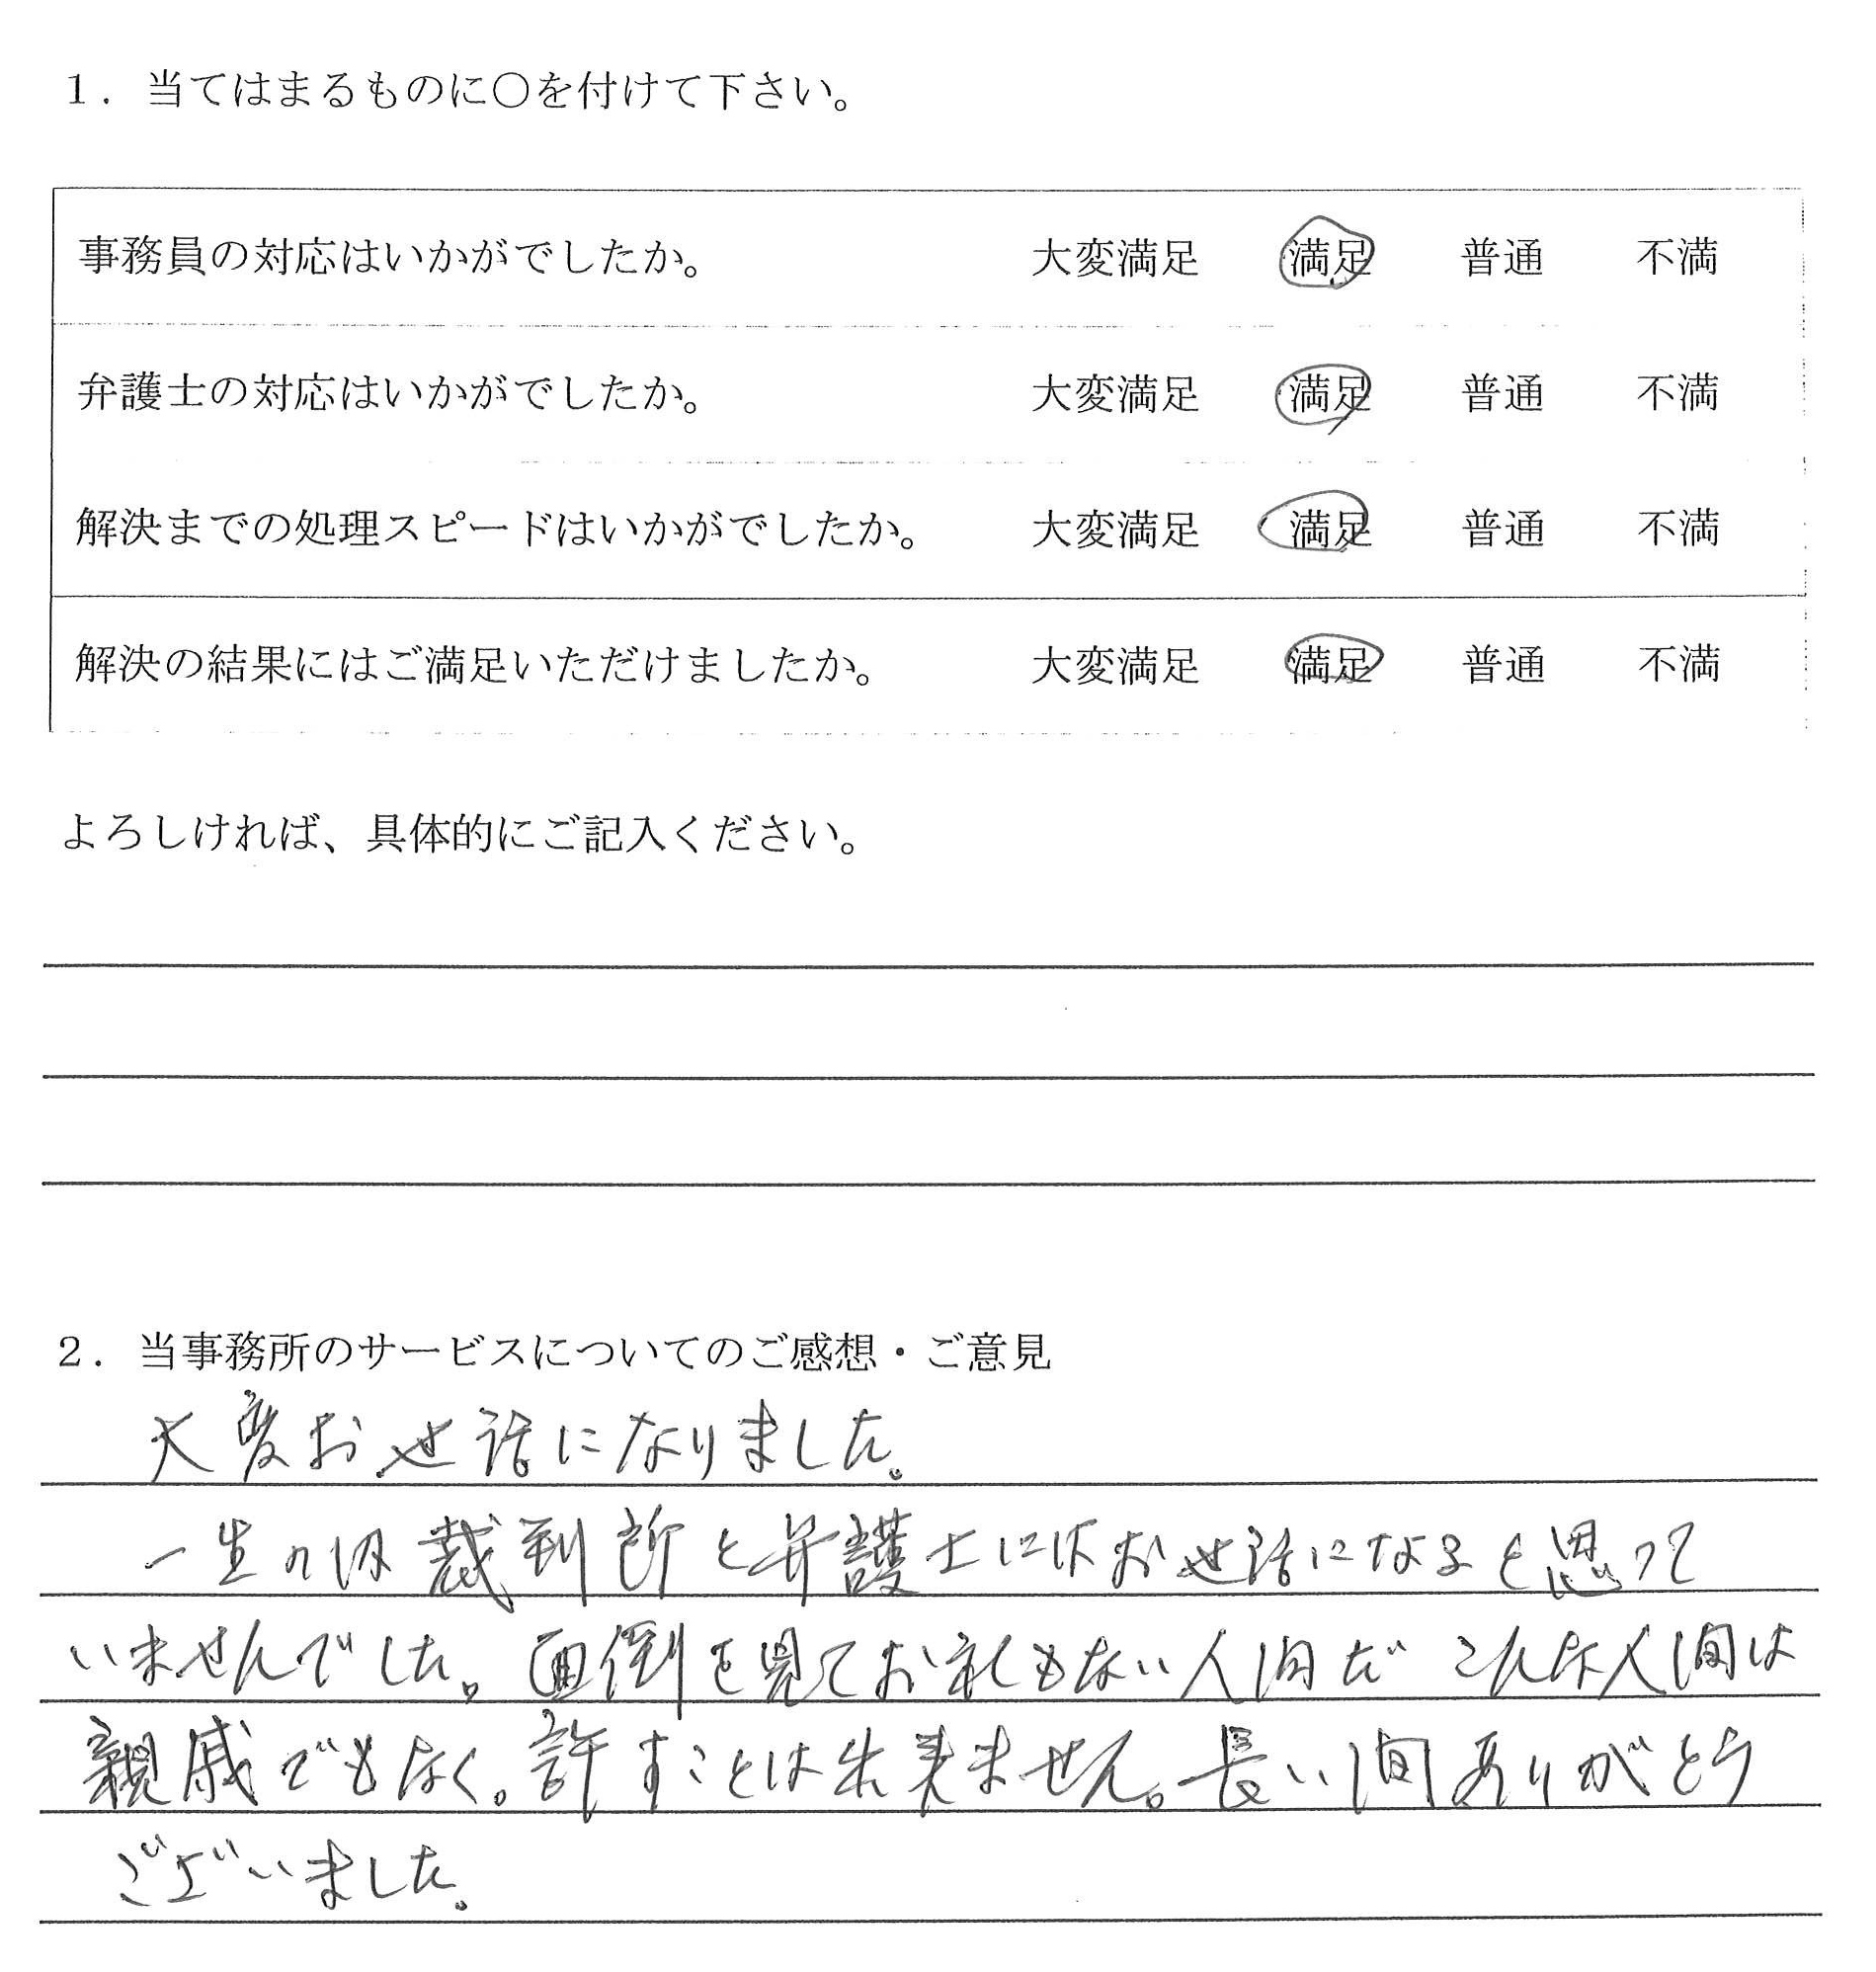 １．当てはまるものに○を付けて下さい。
事務員の対応はいかがでしたか。 大変満足 満足 普通 不満
弁護士の対応はいかがでしたか。 大変満足 満足 普通 不満
解決までの処理スピードはいかがでしたか。 大変満足 満足 普通 不満
解決の結果にはご満足いただけましたか。 大変満足 満足 普通 不満
よろしければ、具体的にご記入ください。
２．当事務所のサービスについてのご感想・ご意見
大変お世話になりました。
一生の内裁判所と弁護士にはお世話になると思って
いませんでした。面倒を見てお礼もない人間だこんな人間は
親戚でもなく。許すことは出来ません。長い間ありがとう
ございました。